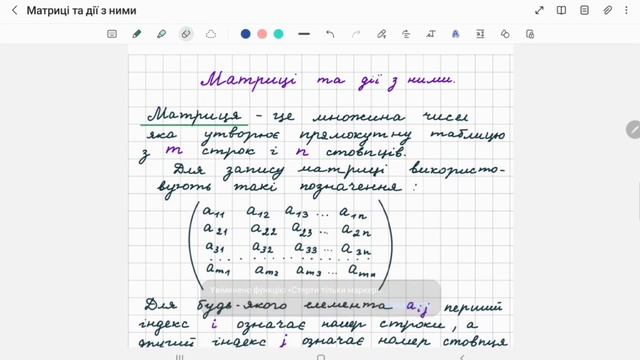 Матриці та дії з ними
Матриці та дії з ними.
Матриця - це множина чисел
яка утворює прямокутну таблицю
з m строк і n стовпців.
Для запису матриці використо-
вують такі позначення :
a11 a12 a13 ... a1n
a21 a22 a23 ... a2n
a31 a32 a33 ... a3n
. . . . . . . . . . . . . . . .
am1 am2 am3 ... amn
Увімкнено функцію «Стерти тільки маркер»
Для будь-якого елемента aij перший
індекс i означає номер строки, а
другий індекс j означає номер стовпця